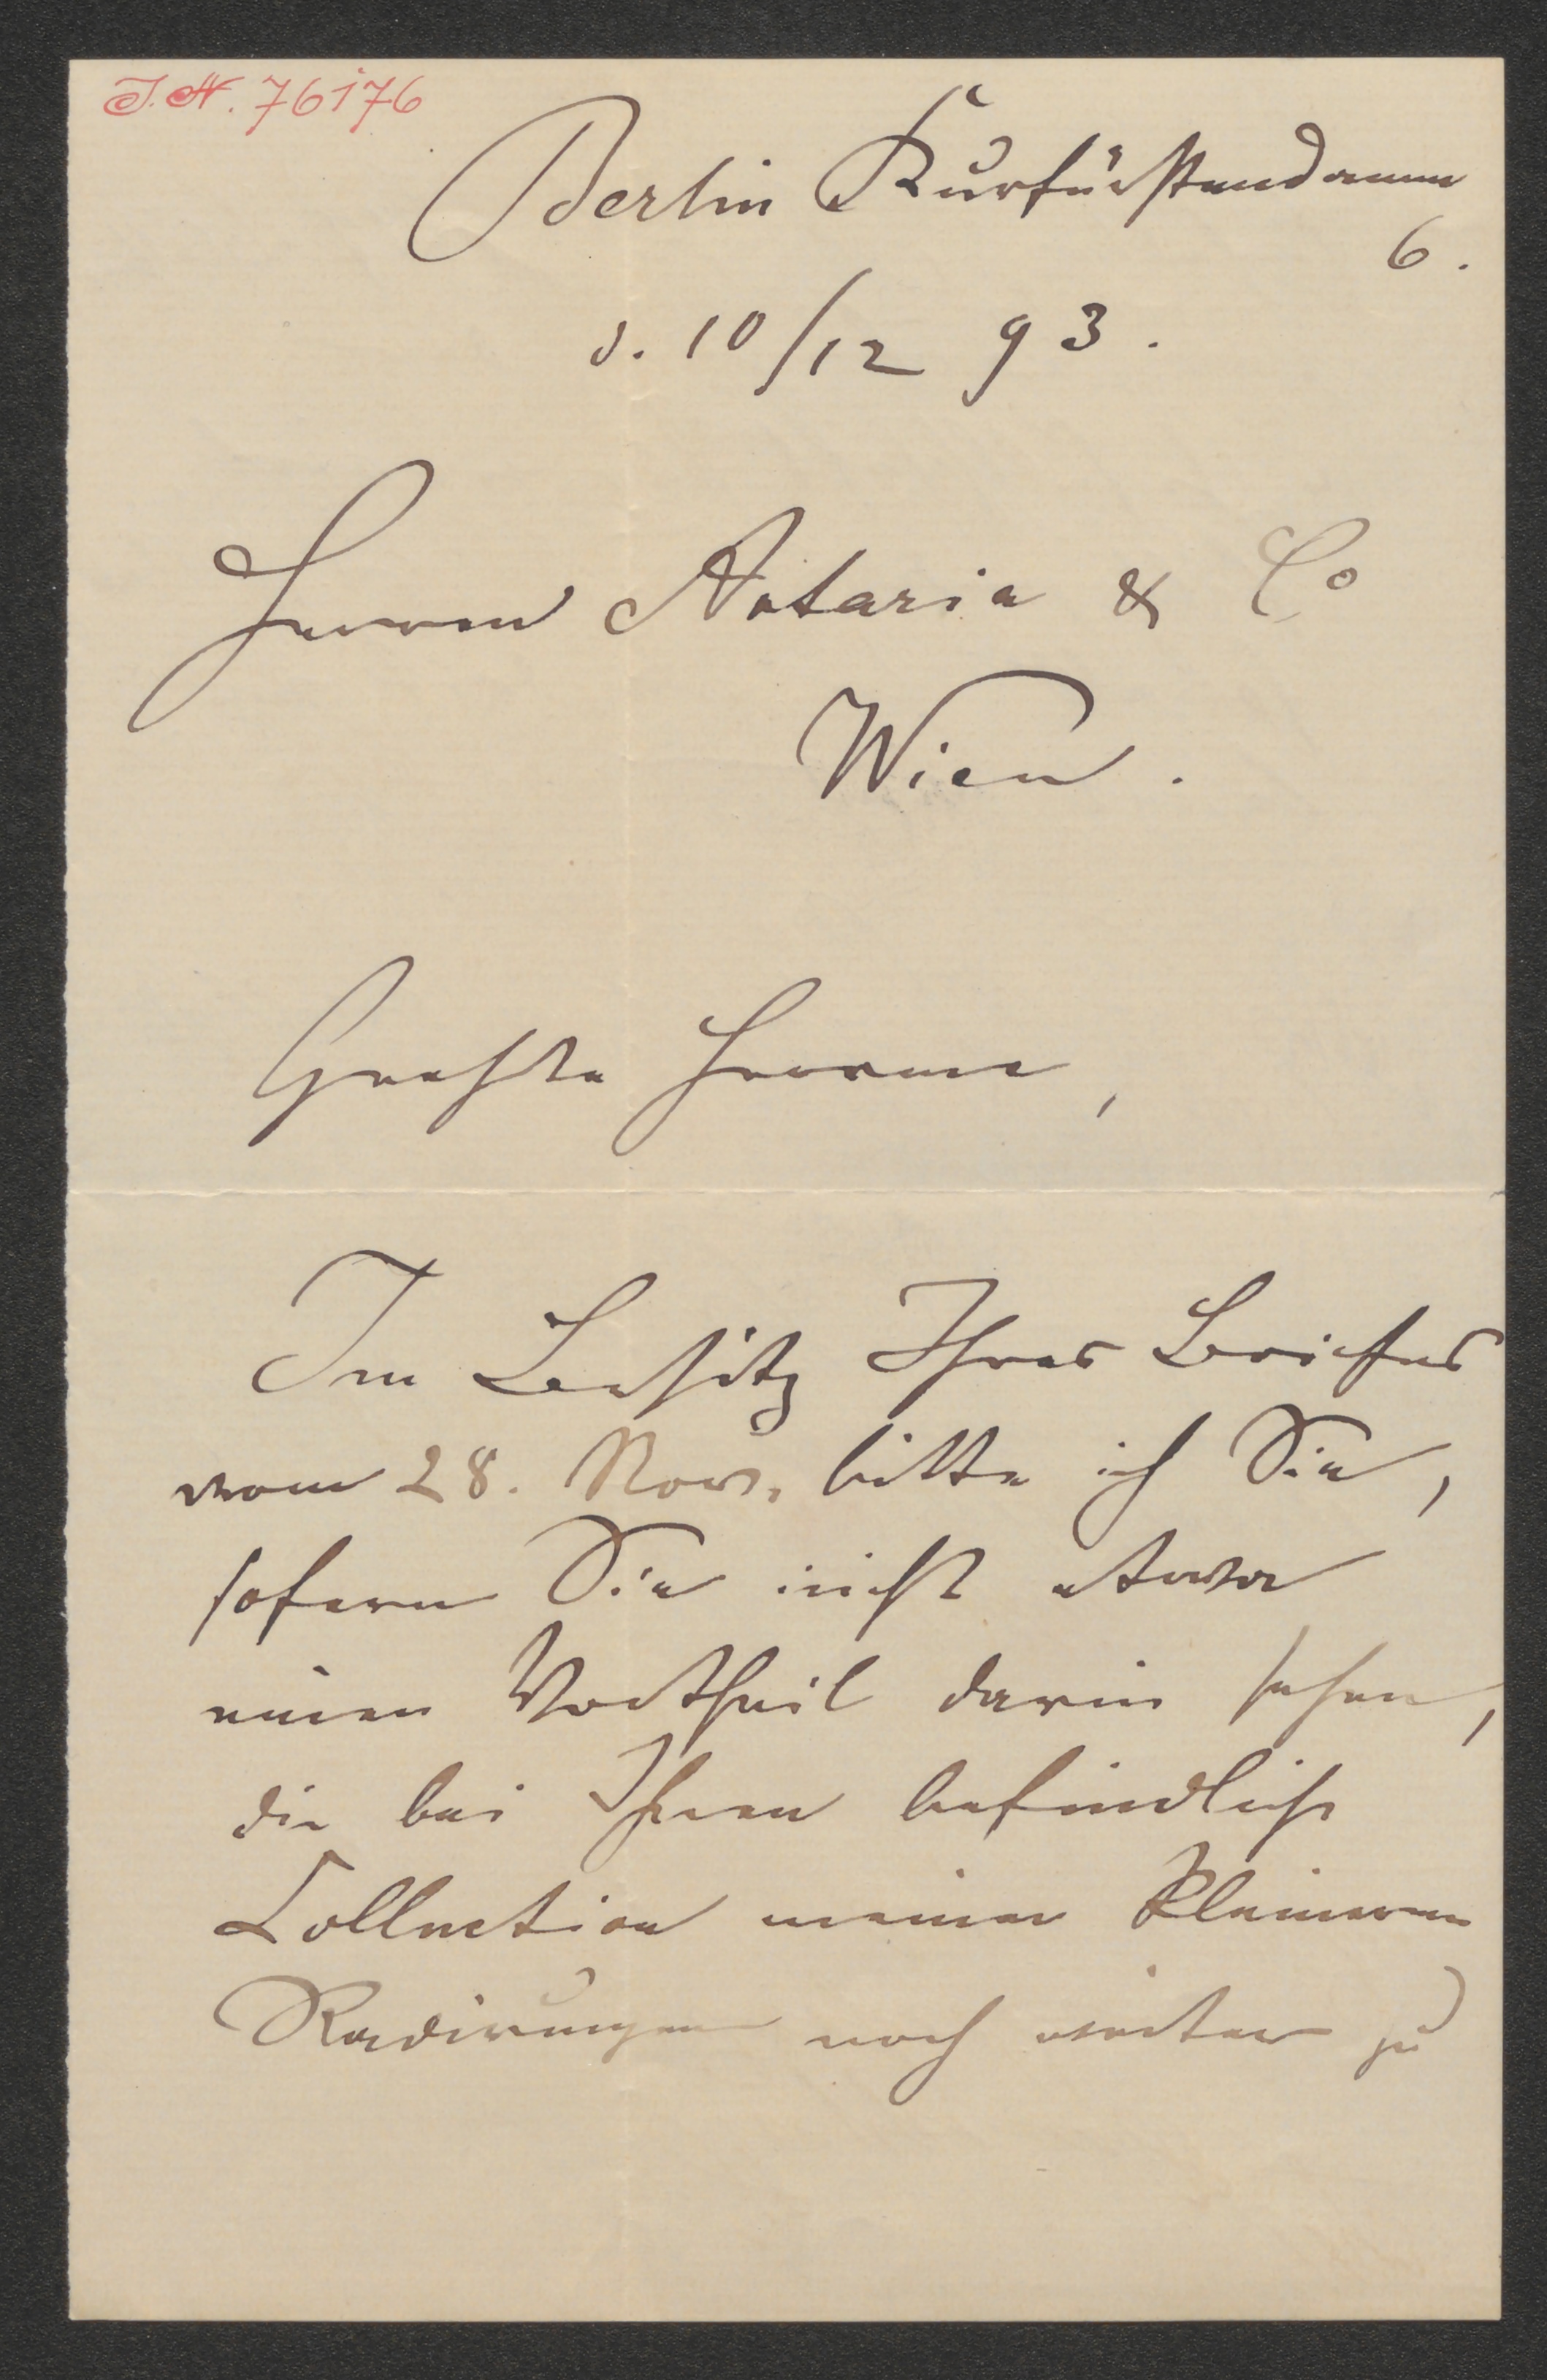 J.N. 76176
Berlin Kurfürstendamm
6.
d. 10/12 93.
Herren Artaria & Co
Wien.
Geehrte Herren,
Im Besitz Ihres Briefes
vom 28. Nov. bitte ich Sie,
sofern Sie nicht etwa
einen Vortheil darin sehen,
die bei Ihnen befindliche
Collection meiner kleineren
Radirungen noch weiter zu